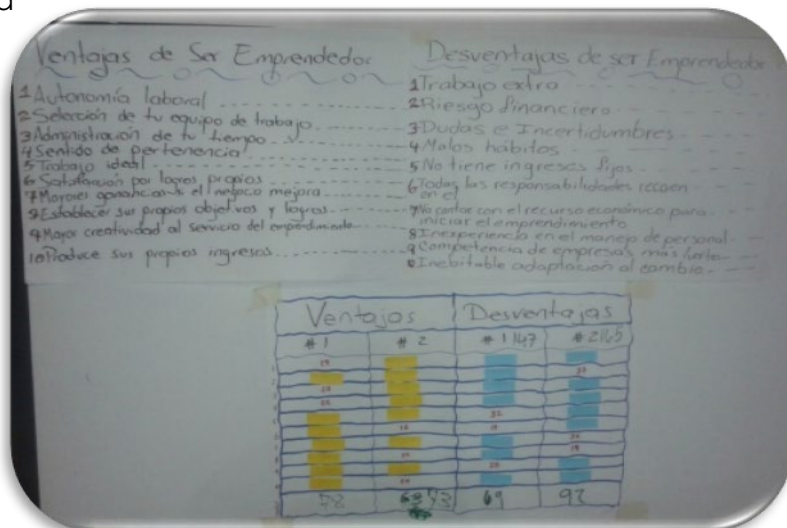 Ventajas de Ser Emprendedor
1 Autonomía laboral
2 Selección de tu equipo de trabajo
3 Administración de tu tiempo
4 Sentido de pertenencia
5 Trabajo ideal
6 Satisfacción por logros propios
7 Mayores ganancias si el negocio mejora
8 Establecer sus propios objetivos y logros
9 Mayor creatividad al servicio del emprendimiento
10 Produce sus propios ingresos
Desventajas de ser Emprendedor
1 Trabajo extra
2 Riesgo financiero
3 Dudas e Incertidumbres
4 Malos hábitos
5 No tiene ingresos fijos
6 Todas las responsabilidades recaen
en el
7 No contar con el recurso económico para
iniciar el emprendimiento
8 Inexperiencia en el manejo de personal
9 Competencia de empresas más fuertes
Inebitable adaptación al cambio
Ventajas Desventajas
#1 #2 #1 147 #2 165
69 92